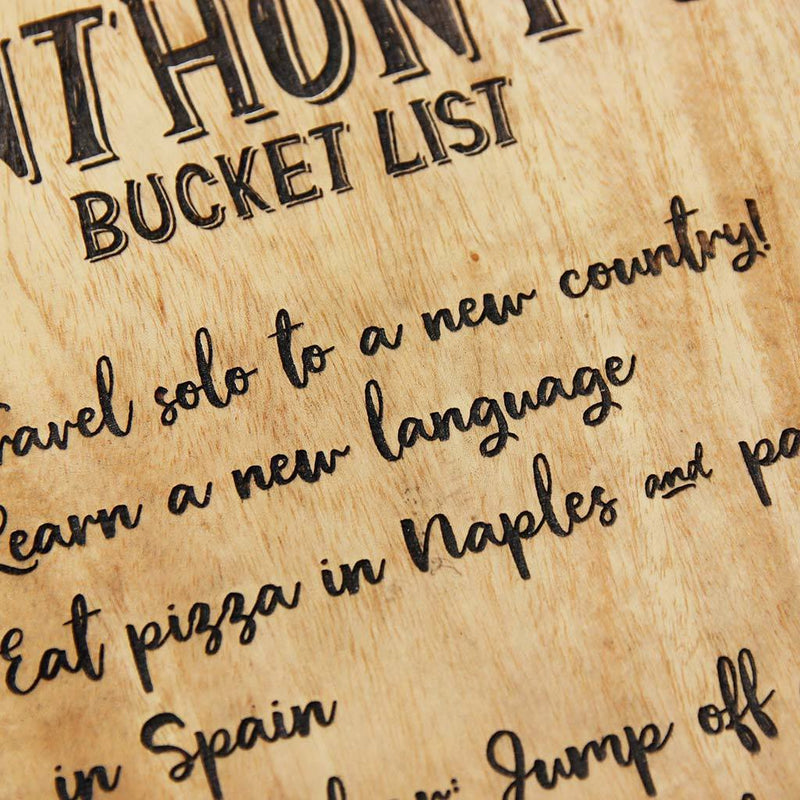 NTHONY'S
BUCKET LIST
ravel solo to a new country!
Learn a new language
Eat pizza in Naples and pa
in Spain
Jump off